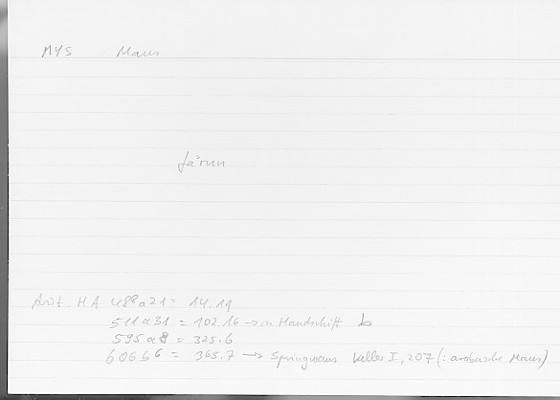 MYS Maus
fa'run
Arist HA 488a21 = 14.19
511a31 = 102.16 → in Handschrift b
595a8 = 325.6
606b6 = 365.7 → Springmaus Keller I, 207 (: arabische Maus)